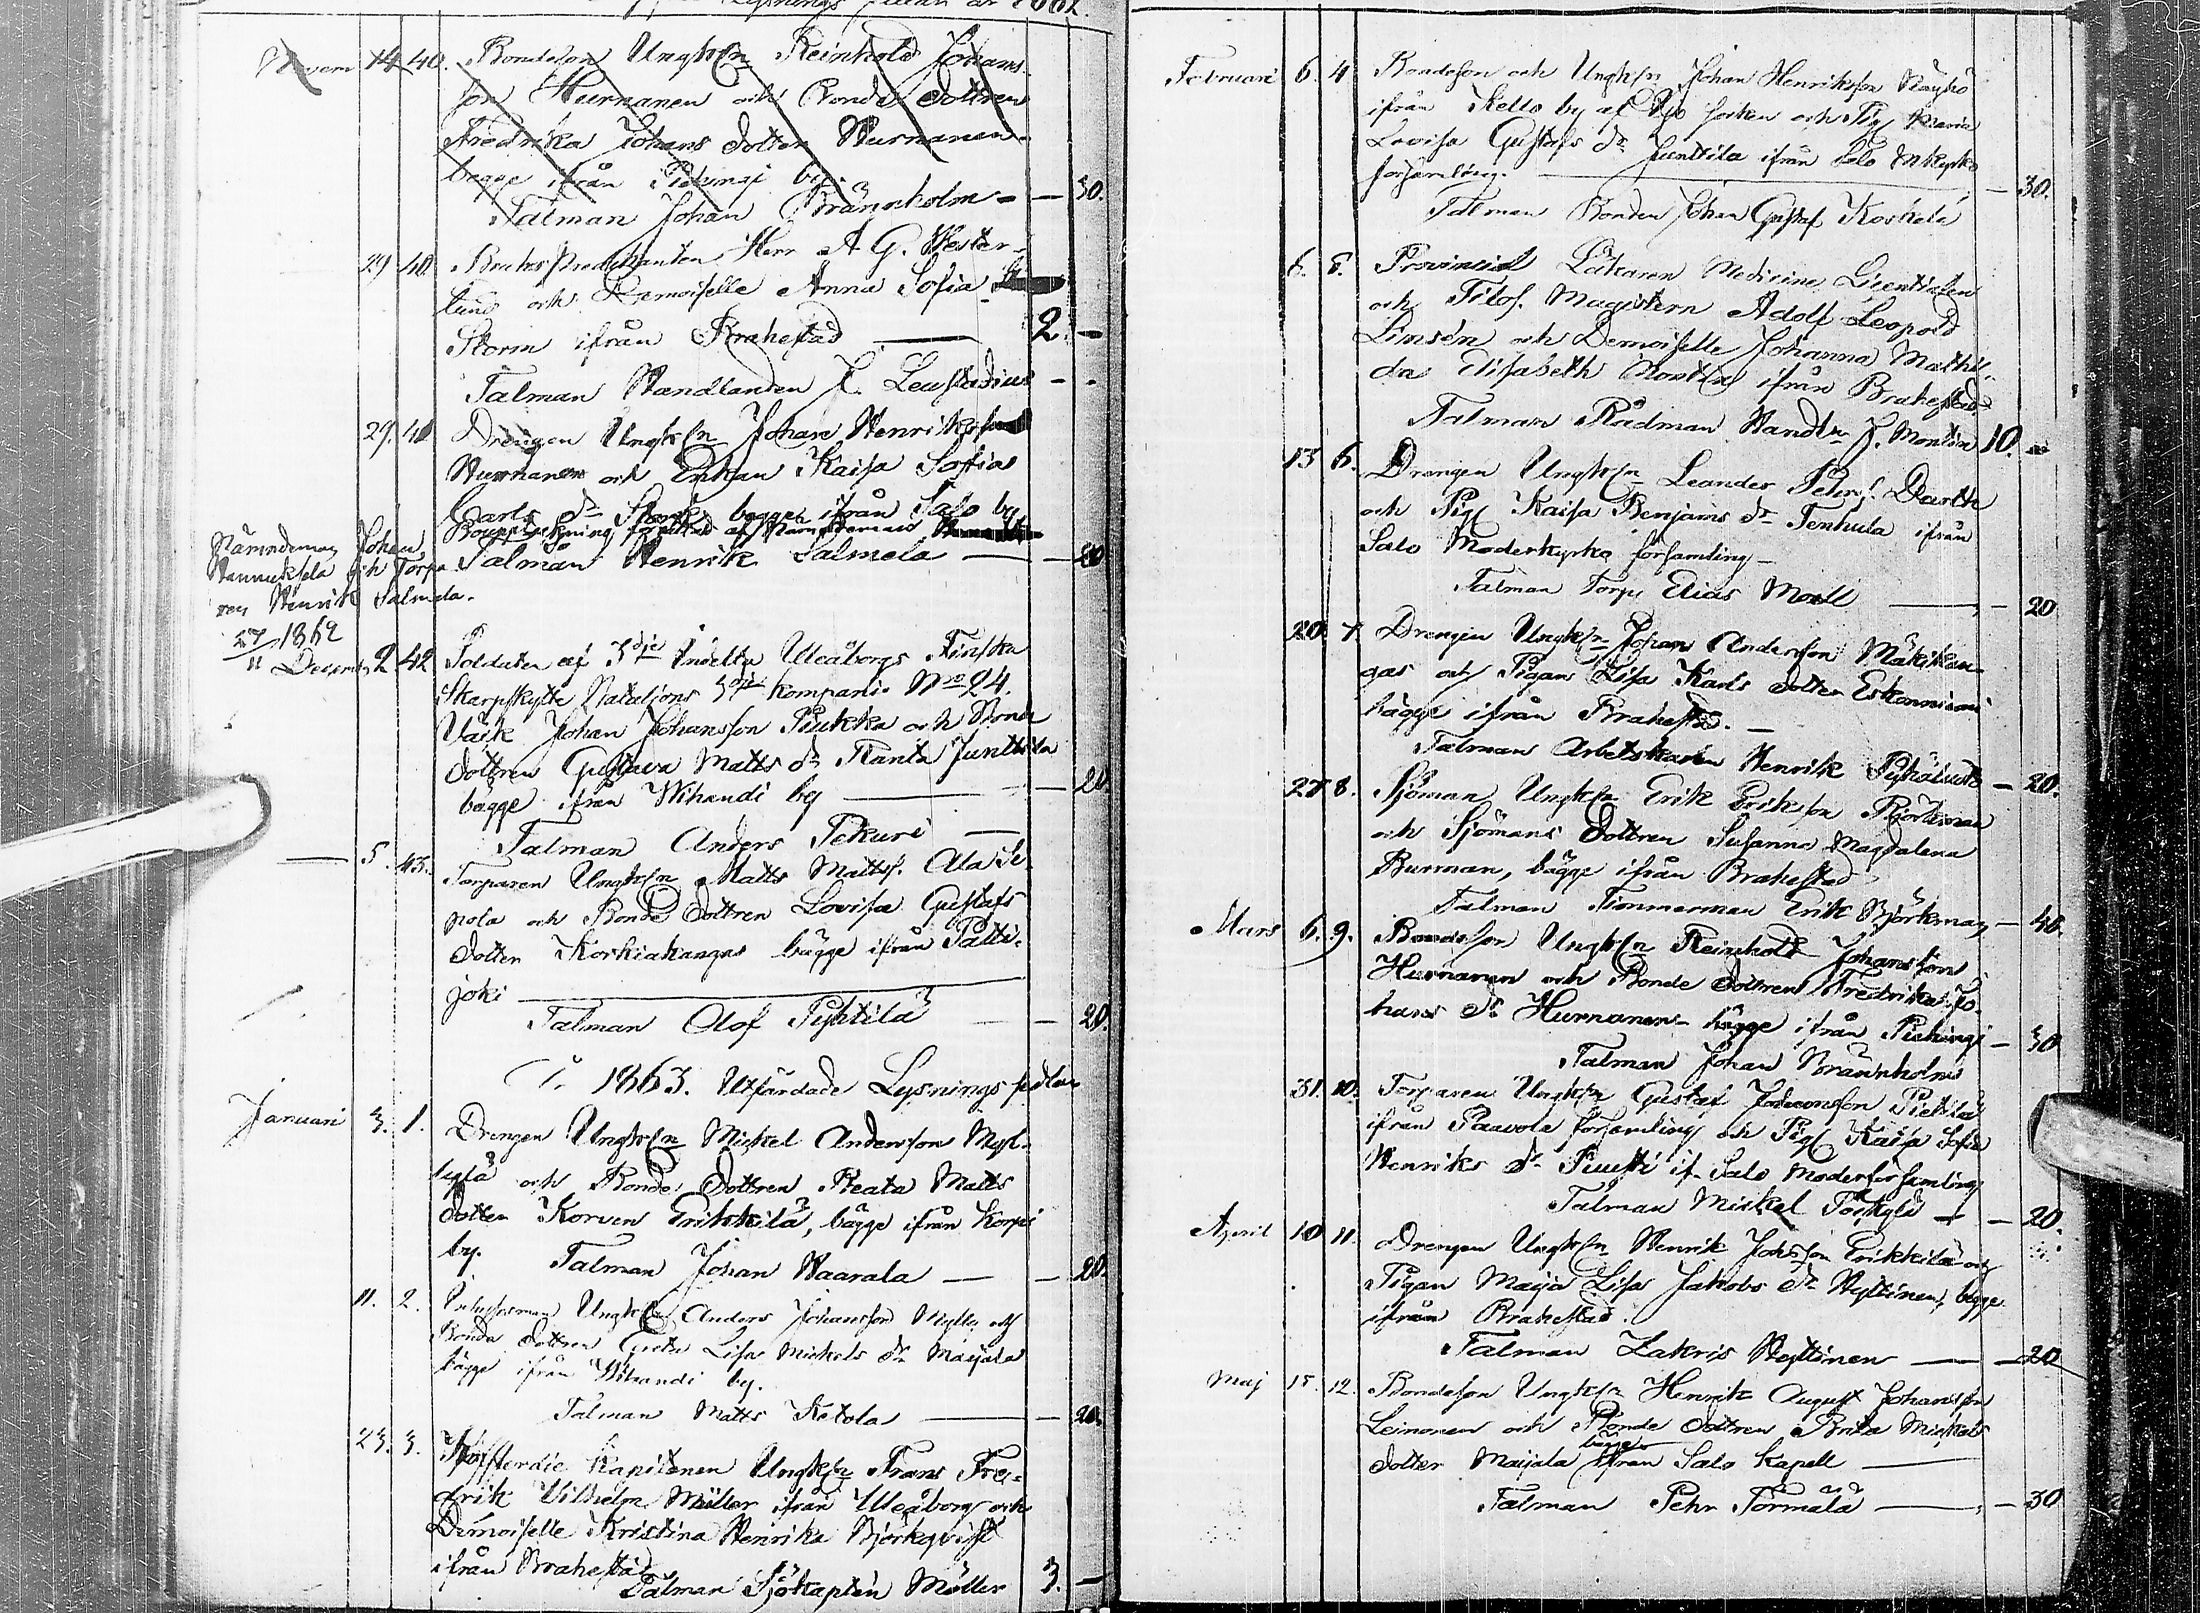 Lysnings år 1862.
Novem 14 40. Bondeson Ungk:n Reinhold Johans-
son Hurnanen och Bonde dottren
Fredrika Johans dotter Hurnanen
bägge ifrån by.
Talman Johan Brännholm — 30.
29 40. Bruks Predikanten Herr A. G. Wester-
lund och Demoiselle Anna Sofia
Storm ifrån Brahestad — 2. —
Talman Handlanden J. Leustadius - -
29. 41 Drengen Ungk:n Johan Henriksson
Hurnanen och Enkan Kaisa Sofia
Carls dr bägge ifrån Salo by
Bouppteckning förrättad af Nämndeman
Talman Henrik Salmela — 20
Nämndeman Johan
Hannuksela och Torpa-
ren Henrik Salmela.
27/11 1862
Decemb 2 42 Soldaten af 3dje Indelta Uleåborgs Finska
Skarpskytte Bataljons 3dje kompani No 24.
Väik Johan Johansson Pukka och Bonde
dottren Gustava Matts dr Ranta Junttila
bägge ifrån Wihandi by — 20.
Talman Anders Tekuri —
— 5. 43. Torparen Ungk:n Matts Mattss. Ala Se-
pola och Bonde dottren Lovisa Gustafs
dotter Korkiakangas bägge ifrån Patti-
joki —
Talman Olof Pyhtilä — 20.
År 1863. Utfärdade Lysnings sedlar
Januari 3. 1. Drengen Ungk:n Mickel Andersson Myl-
lylä och Bonde dottren Beata Matts
dotter Korven Erikkilä, bägge ifrån Korpi
by. Talman Johan Waarala — 20.
11. 2. Ungk:n Anders Johansson Mylly och
Bonde dottren Greta Lisa Mickels dr Maijala
bägge ifrån Wihandi by.
Talman Matts Ketola — 20.
23. 3. Kofferdie Kapitenen Ungk:n Frans Fre-
drik Vilhelm Müller ifrån Uleåborg och
Demoiselle Kristina Henrika Björkqvist
ifrån Brahestad
Talman Sjökapten Möller 3. —
Februari 6. 4 Bondeson och Ungk:n Johan Henriksson
ifrån Kello by af socken och Pig. Maria
Lovisa Gustafs dr Junttila ifrån Salo Mkyrko
församling. — 30.
Talman Bonden Johan Gustaf Koskela
6. 5. Provincial Läkaren Medicine Licentiaten
och Filos. Magistern Adolf Leopold
Limsén och Demoiselle Johanna Mathil-
da Elisabeth Montin ifrån Brahestad
Talman Rådman Handl. J. Montin 10. —
13 6. Drengen Ungk:n Leander Pehrs.
och Pig. Kaisa Benjams dr Tenhula ifrån
Salo Moderkyrko församling —
Talman Torp. Elias Moell — 20
20 7. Drengen Ungk:n Johan Andersson Mäkikan-
gas och Pigan Lisa Karls dotter Eskonniemi
bägge ifrån Brahestad. —
Talman Arbetskarlen Henrik — 20.
27 8. Sjöman Ungk:n Erik Eriksson Björkman
och Sjömans dottren Susanna Magdalena
Burman, bägge ifrån Brahestad
Talman Timmerman Erik Björkman — 40.
Mars 6. 9. Bondeson Ungk:n Reinhold Johansson
Hurnanen och Bonde dottren Fredrika Jo-
hans dr Hurnanen bägge ifrån — 30
Talman Johan Brännholm
31. 10. Torparen Ungk:n Gustaf Pietilä
ifrån Paavola församling och Pig. Kaisa Sofia
Henriks dr if. Salo Moderförsamling
Talman Mickel — 20.
April 10 11. Drengen Ungk:n Henrik Johansson Erikkilä och
Pigan Maija Lisa Jakobs dr Hyttinen, bägge
ifrån Brahestad.
Talman Zakris Hyttinen — 20
Maj 15. 12. Bondeson Ungk:n Henrik August Johansson
Leinonen och Bonde dottren Brita Mickels
dotter Maijala bägge ifrån Salo Kapell —
Talman Pehr Törmälä — 30